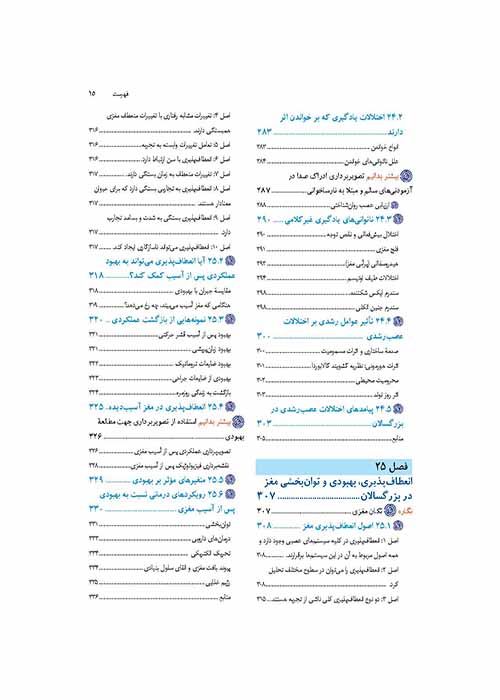 فهرست ۱۵
۲۴.۲ اختلالات یادگیری که بر خواندن اثر
دارند ..... ۲۸۳
انواع خواندن ..... ۲۸۳
علل ناتوانی‌های خواندن ..... ۲۸۴
بیشتر بدانیم تصویربرداری ادراک صدا در
آزمودنی‌های سالم و مبتلا به نارساخوانی ..... ۲۸۷
ارزیابی عصب روان‌شناختی ..... ۲۸۸
۲۴.۳ ناتوانی‌های یادگیری غیرکلامی ..... ۲۹۰
اختلال بیش‌فعالی و نقص توجه ..... ۲۹۰
فلج مغزی ..... ۲۹۱
هیدروسفالی (پرآبی مغز) ..... ۲۹۳
اختلالات طیف اوتیسم ..... ۲۹۴
سندرم ایکس شکننده ..... ۲۹۸
سندرم جنین الکلی ..... ۲۹۸
۲۴.۴ تأثیر عوامل رشدی بر اختلالات
عصب‌رشدی ..... ۳۰۰
صدمهٔ ساختاری و اثرات مسمومیت ..... ۳۰۰
اثرات هورمونی: نظریه گشویند گالابوردا ..... ۳۰۱
محرومیت محیطی ..... ۳۰۲
اثر روز تولد ..... ۳۰۳
۲۴.۵ پیامدهای اختلالات عصب‌رشدی در
بزرگسالان ..... ۳۰۳
منابع ..... ۳۰۵
فصل ۲۵
انعطاف‌پذیری، بهبودی و توان‌بخشی مغز
در بزرگسالان ..... ۳۰۷
نگاره تکان مغزی ..... ۳۰۷
۲۵.۱ اصول انعطاف‌پذیری مغز ..... ۳۰۸
اصل ۱: انعطاف‌پذیری در کلیه سیستم‌های عصبی وجود دارد و
همه اصول مربوط به آن در این سیستم‌ها برقرارند. ..... ۳۰۸
اصل ۲: انعطاف‌پذیری را می‌توان در سطوح مختلف تحلیل
کرد. ..... ۳۰۸
اصل ۳: دو نوع انعطاف‌پذیری کلی ناشی از تجربه هستند. ..... ۳۱۵
اصل ۴: تغییرات مشابه رفتاری با تغییرات منعطف مغزی
همبستگی دارند. ..... ۳۱۶
اصل ۵: تعامل تغییرات وابسته به تجربه ..... ۳۱۶
اصل ۶: انعطاف‌پذیری با سن ارتباط دارد. ..... ۳۱۶
اصل ۷: تغییرات منعطف به زمان بستگی دارند. ..... ۳۱۷
اصل ۸: انعطاف‌پذیری به تجاربی بستگی دارد که برای حیوان
معنادار هستند. ..... ۳۱۷
اصل ۹: انعطاف‌پذیری بستگی به شدت و بسامد تجارب
دارد. ..... ۳۱۷
اصل ۱۰: انعطاف‌پذیری می‌تواند ناسازگاری ایجاد کند. ..... ۳۱۷
۲۵.۲ آیا انعطاف‌پذیری می‌تواند به بهبود
عملکردی پس از آسیب کمک کند؟ ..... ۳۱۸
مقایسهٔ جبران با بهبودی ..... ۳۱۸
هنگامی که مغز آسیب می‌بیند، چه رخ می‌دهد؟ ..... ۳۱۹
۲۵.۳ نمونه‌هایی از بازگشت عملکردی ..... ۳۲۰
بهبود پس از آسیب قشر حرکتی ..... ۳۲۱
بهبود زبان‌پریشی ..... ۳۲۱
بهبود از ضایعات تروماتیک ..... ۳۲۲
بهبودی از ضایعات جراحی ..... ۳۲۳
بازگشت به زندگی روزمره ..... ۳۲۴
۲۵.۴ انعطاف‌پذیری در مغز آسیب‌دیده ..... ۳۲۵
بیشتر بدانیم استفاده از تصویربرداری جهت مطالعهٔ
بهبودی ..... ۳۲۶
تصویربرداری عملکردی پس از آسیب مغزی ..... ۳۲۶
نقشه‌برداری فیزیولوژیک پس از آسیب مغزی ..... ۳۲۸
۲۵.۵ متغیرهای مؤثر بر بهبودی ..... ۳۲۹
۲۵.۶ رویکردهای درمانی نسبت به بهبودی
پس از آسیب مغزی ..... ۳۳۰
توان‌بخشی ..... ۳۳۱
درمان‌های دارویی ..... ۳۳۳
تحریک الکتریکی ..... ۳۳۴
پیوند بافت مغزی و القای سلول بنیادی ..... ۳۳۴
رژیم غذایی ..... ۳۳۵
منابع ..... ۳۳۶